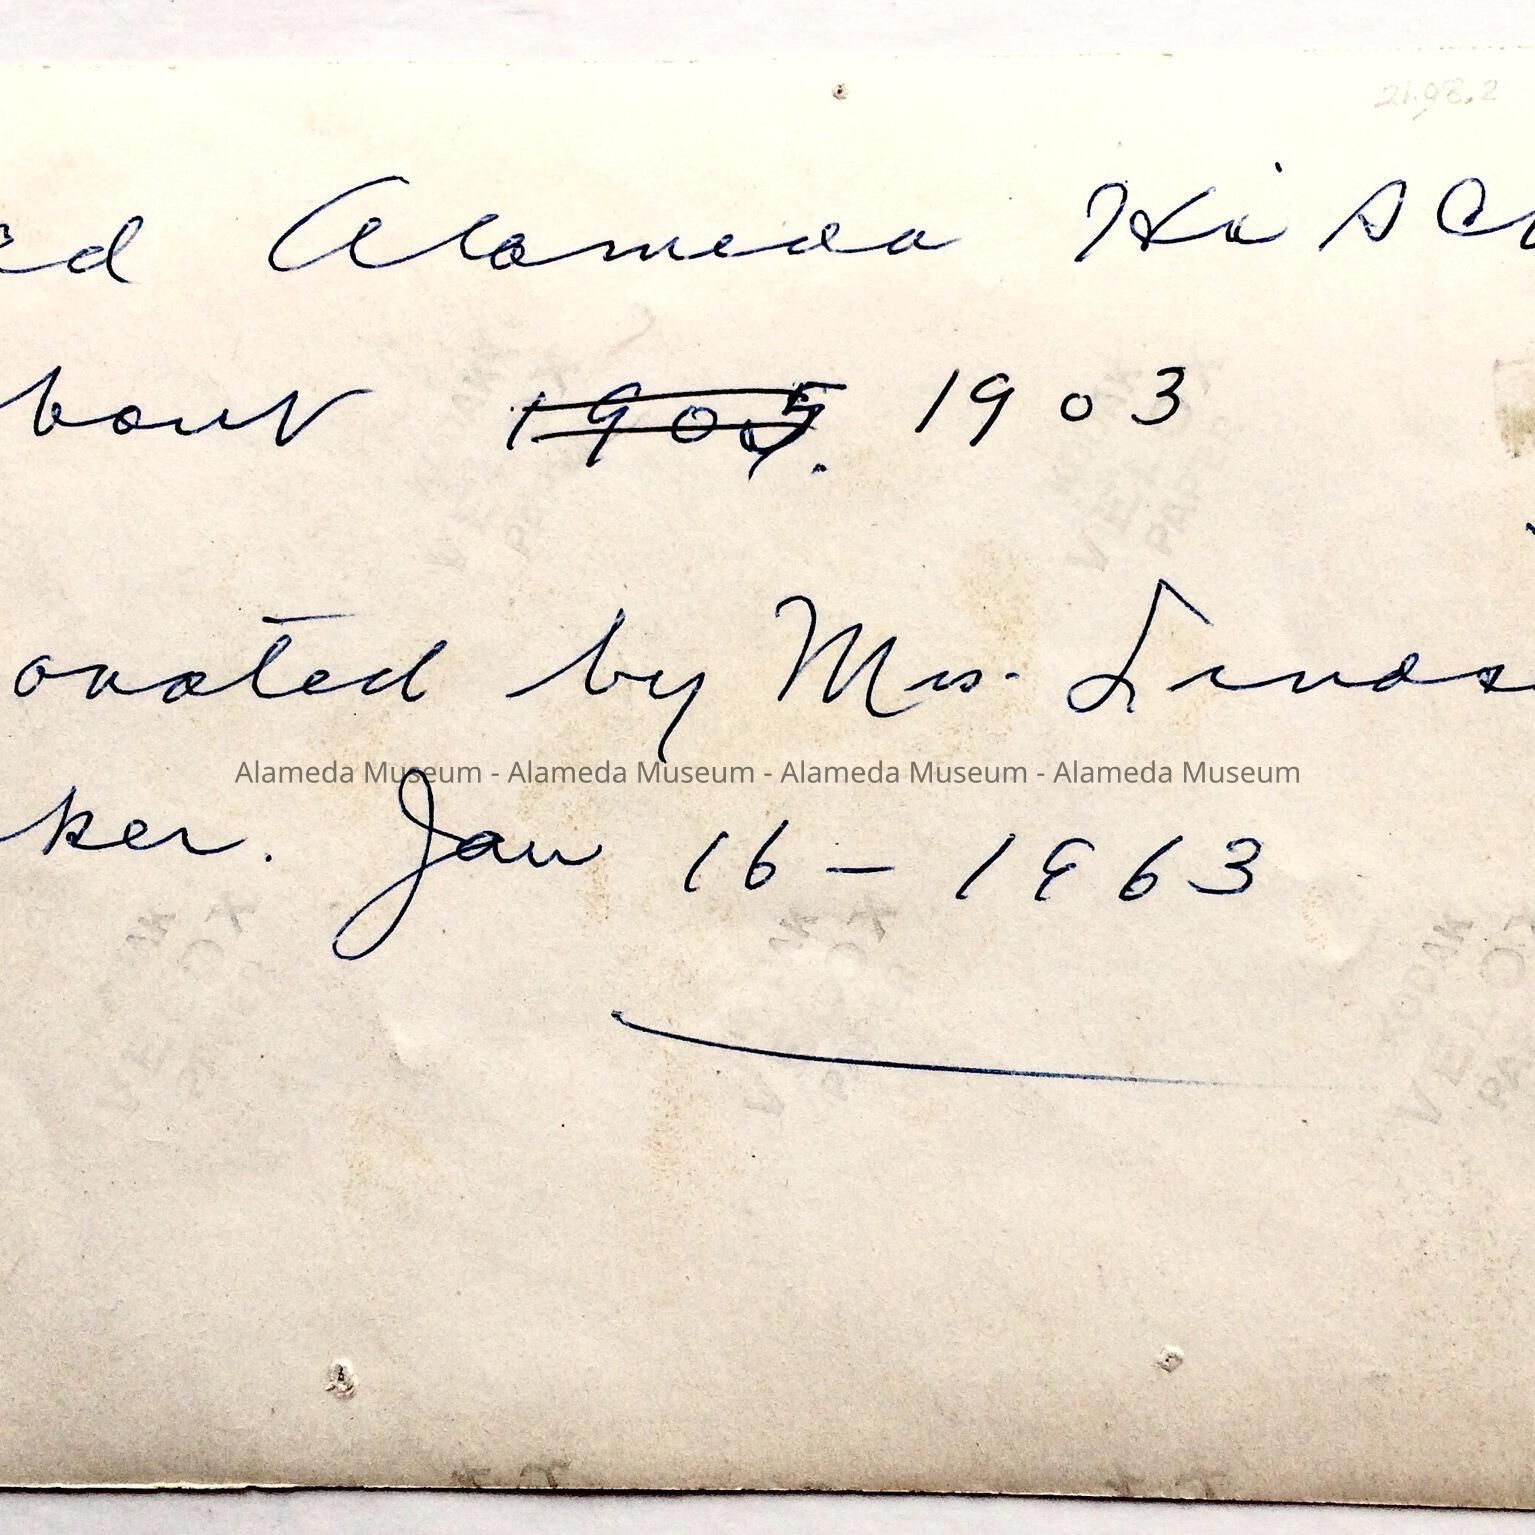 21.98.2
ed Alameda Hi Sch
bout 1905. 1903
onated by Mrs. Lindsa
Alameda Museum - Alameda Museum - Alameda Museum - Alameda Museum
ker. Jan 16 - 1963